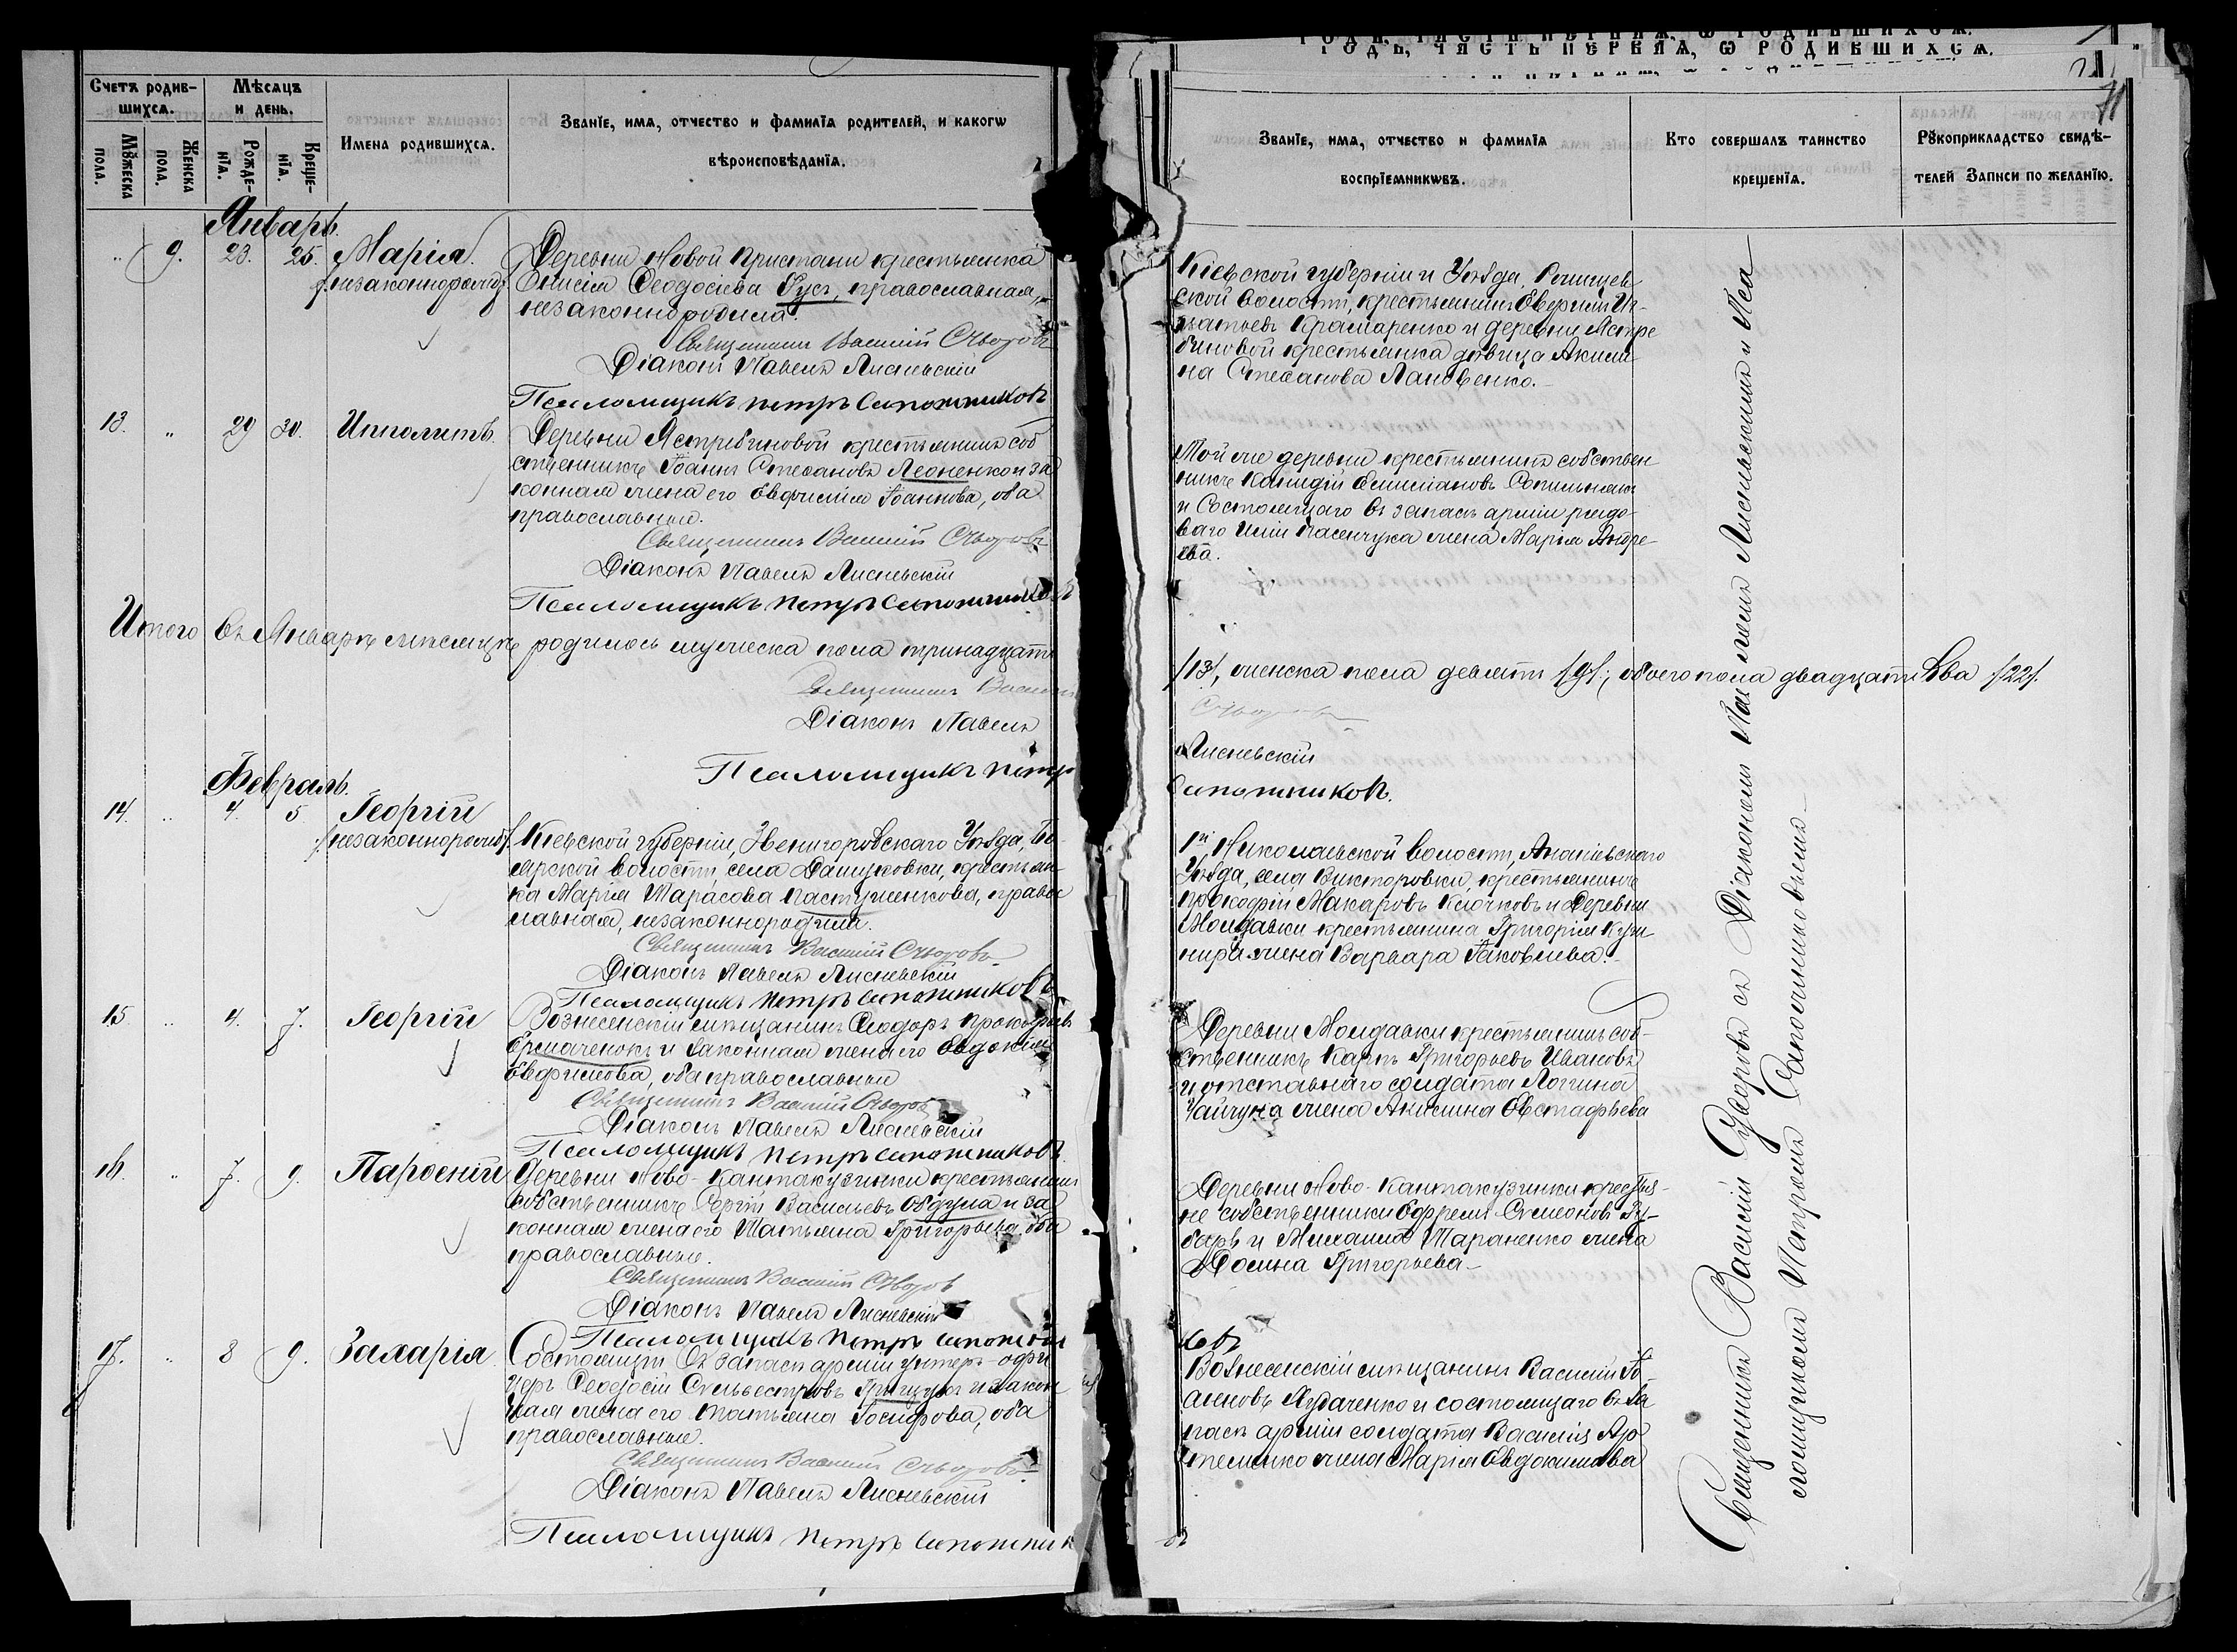 годъ, часть первая, ѡ родившихся.
Счетъ родив-
шихся.
Мѣсяцъ
и день.
Мꙋжеска
пола.
Женска
пола.
Рожде-
нїя.
Креще-
нїя.
Имена родившихся.
Званїе, имя, отчество и фамилїя родителей, и какогѡ
вѣроисповѣданїя.
Званїе, имя, отчество и фамилїя
воспрїемникѡвъ.
Кто совершалъ таинство
крещенїя.
Рꙋкоприкладство свидѣ-
телей записи по желанїю.
Январь.
" 9. 23. 25. Марія
/незаконнорожд/.
Деревни Новой Пристани крестьянка
Анисія Ѳеодосіева Гусъ, православная,
незаконно родила.
Священникъ Василій Суворовъ
Діаконъ Павелъ Лисневскій
Псаломщикъ Петръ Сапожниковъ
Кіевской губерніи и Уѣзда,
ской волости, крестьянинъ Евфимій Иг-
натьевъ Крамаренко и деревни Ястре
биновой крестьянка дѣвица Акили-
на Стефанова Лановенко.
13. " 29 30. Ипполитъ.
Деревни Ястребиновой крестьянинъ соб
ственникъ Іоаннъ Стефановъ Леоненко и за
конная жена его Евфимія Іоаннова, оба
православные.
Священникъ Василій Суворовъ
Діаконъ Павелъ Лисневскій
Псаломщикъ Петръ Сапожниковъ
Той же деревни крестьянинъ собствен
никъ Емиліановъ
и Состоящаго въ запасѣ арміи рядо-
ваго жена Марія Андре
ева.
Итого въ Январѣ мѣсяцѣ родилось мужеска пола тринадцать
/13/, женска пола девять /9/; обоего пола двадцать два /22/.
Священникъ Василій
Суворовъ
Діаконъ Павелъ
Лисневскій
Псаломщикъ Петръ
Сапожниковъ.
Февраль.
14. " 4. 5 Георгій
/незаконнорожд/.
Кіевской губерніи, Звенигородскаго Уѣзда, Бо-
ярской волости, села Дашуковки, крестьян-
ка Марія Тарасова Пастушенкова, право
славная, незаконно родила.
Священникъ Василій Суворовъ
Діаконъ Павелъ Лисневскій
Псаломщикъ Петръ Сапожниковъ
1й Николаевской волости, Ананіевскаго
Уѣзда, села Викторовки, крестьянинъ
Прокофій Макаровъ Клочковъ и Деревни
Молдавки крестьянина Григорія Куш
нира жена Варвара Іаковлева.
15. " 4. 7. Георгій
Вознесенскій мѣщанинъ Ѳеодоръ Прокофьевъ
Ермаченокъ и законная жена его Евдокія
Евфимова, оба православные
Священникъ Василій Суворовъ
Діаконъ Павелъ Лисневскій
Псаломщикъ Петръ Сапожниковъ
Деревни Молдавки крестьянинъ соб-
ственникъ Карпъ Григорьевъ Ивановъ
и отставнаго солдата Логгина
Чайчука жена Акилина Евстафьева
16. " 7. 9. Парѳеній
Деревни Ново-Кантакузинки крестьянинъ
собственникъ Сергій Васильевъ Обдула и за
конная жена его Татьяна Григорьева, оба
православные.
Священникъ Василій Суворовъ
Діаконъ Павелъ Лисневскій
Псаломщикъ Петръ Сапожников
Деревни Ново-Кантакузинки крестья-
не собственники Ефремъ Симеоновъ Ры-
барь и Михаила Тараненко жена
Домна Григорьева
17. " 8 9. Захарія
Состоящій въ запасѣ арміи унтеръ-офи
церъ Ѳеодосій Сильвестровъ Грицукъ и закон
ная жена его Татьяна Іосифова, оба
православные.
Священникъ Василій Суворовъ
Діаконъ Павелъ Лисневскій
Псаломщикъ Петръ Сапожник
Вознесенскій мѣщанинъ Василій Іо
анновъ Лубаченко и состоящаго въ за
пасѣ арміи солдата Василія Ар
теменко жена Марія Евдокимова
Священникъ Василій Суворовъ съ Діакономъ Павломъ Лисневскимъ и Пса
ломщикомъ Петромъ Сапожниковымъ